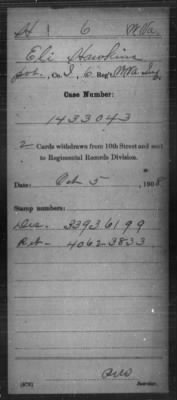 H | 6 | W.Va.
Eli Hawkins
Pvt., Co. I, 6 Reg't W Va Inf.
Case Number:
1433043
2 Cards withdrawn from 10th Street and sent
to Regimental Records Division.
Date: Oct 5, 190
Stamp numbers:
Dec. 33936199
Ret. 40623833
(878) Searcher.